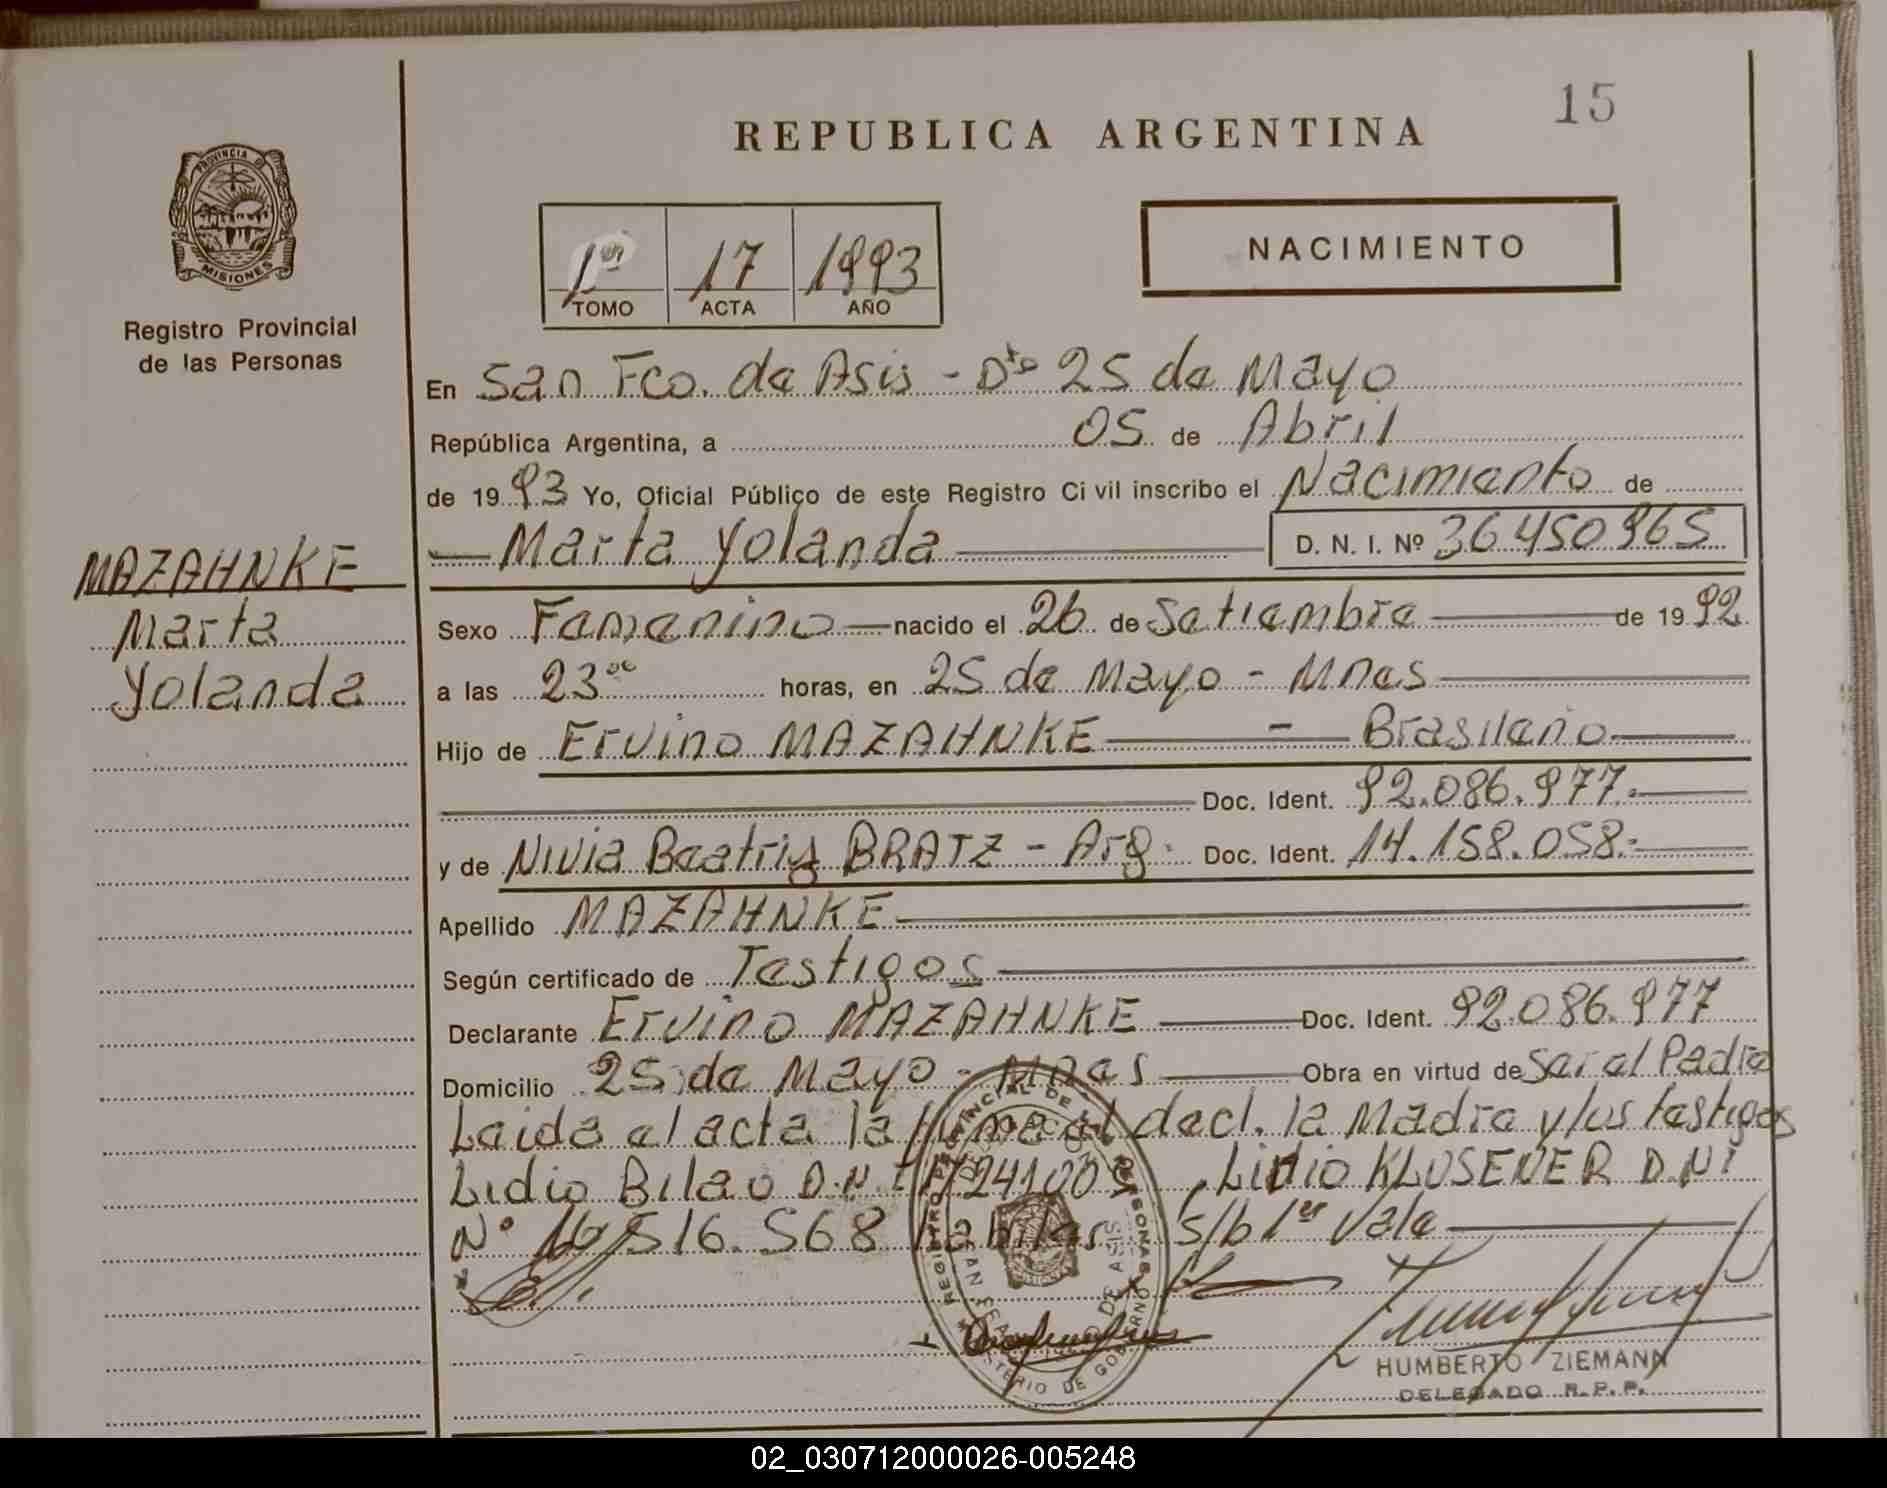 15
REPUBLICA ARGENTINA
PROVINCIA DE
MISIONES
Registro Provincial
de las Personas
1º TOMO 17 ACTA 1993 AÑO
NACIMIENTO
En San Fco. de Asis - Dto 25 de Mayo
República Argentina, a 05 de Abril
de 1993 Yo, Oficial Público de este Registro Civil inscribo el Nacimiento de
Marta Yolanda D. N. I. Nº 36450965
MAZAHNKE
Marta
Yolanda
Sexo Femenino nacido el 26 de Setiembre de 1992
a las 23ºº horas, en 25 de Mayo - Mnes
Hijo de Ervino MAZAHNKE - Brasileño
Doc. Ident. 92.086.977.-
y de Nivia Beatris BRATZ - Arg. Doc. Ident. 14.158.058.-
Apellido MAZAHNKE
Según certificado de Testigos
Declarante Ervino MAZAHNKE Doc. Ident. 92.086.977
Domicilio 25 de Mayo - Mnes Obra en virtud de Ser el Padre
Leida el acta la firma el decl. la Madre y los testigos
Lidio Bilao D.N.I Lidio KLUSENER D.NI
Nº 16.516.568 habiles S/b 1er Vale
HUMBERTO ZIEMANN
DELEGADO R. P. P.
02_030712000026-005248